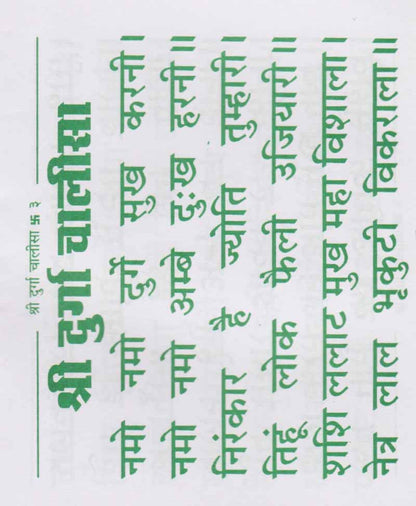 श्री दुर्गा चालीसा 卐 ३
श्री दुर्गा चालीसा
नमो नमो दुर्गे सुख करनी।
नमो नमो अम्बे दुःख हरनी॥
निरंकार है ज्योति तुम्हारी।
तिहूं लोक फैली उजियारी॥
शशि ललाट मुख महा विशाला।
नेत्र लाल भृकुटी विकराला॥